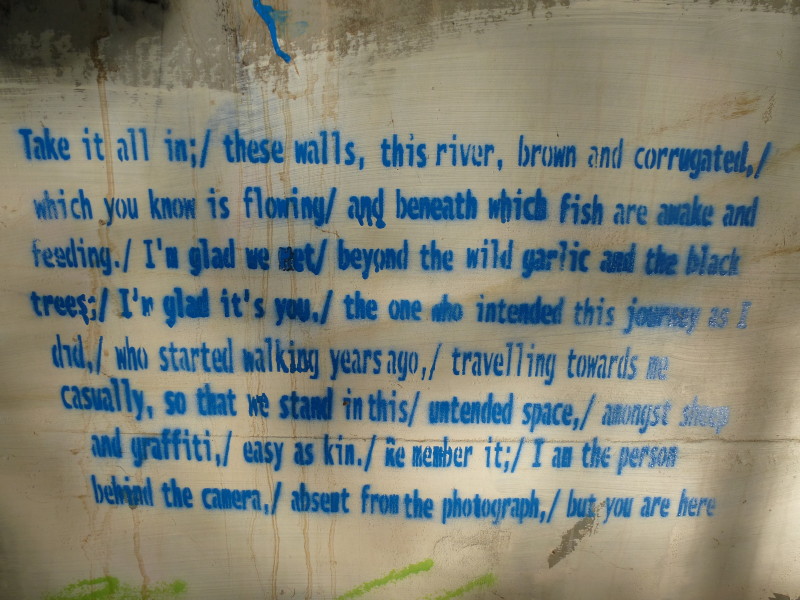 Take it all in;/ these walls, this river, brown and corrugated,/
which you know is flowing/ and beneath which fish are awake and
feeding./ I'm glad we met/ beyond the wild garlic and the black
trees;/ I'm glad it's you,/ the one who intended this journey as I
did,/ who started walking years ago,/ travelling towards me
casually, so that we stand in this/ untended space,/ amongst sheep
and graffiti,/ easy as kin./ Remember it;/ I am the person
behind the camera,/ absent from the photograph,/ but you are here